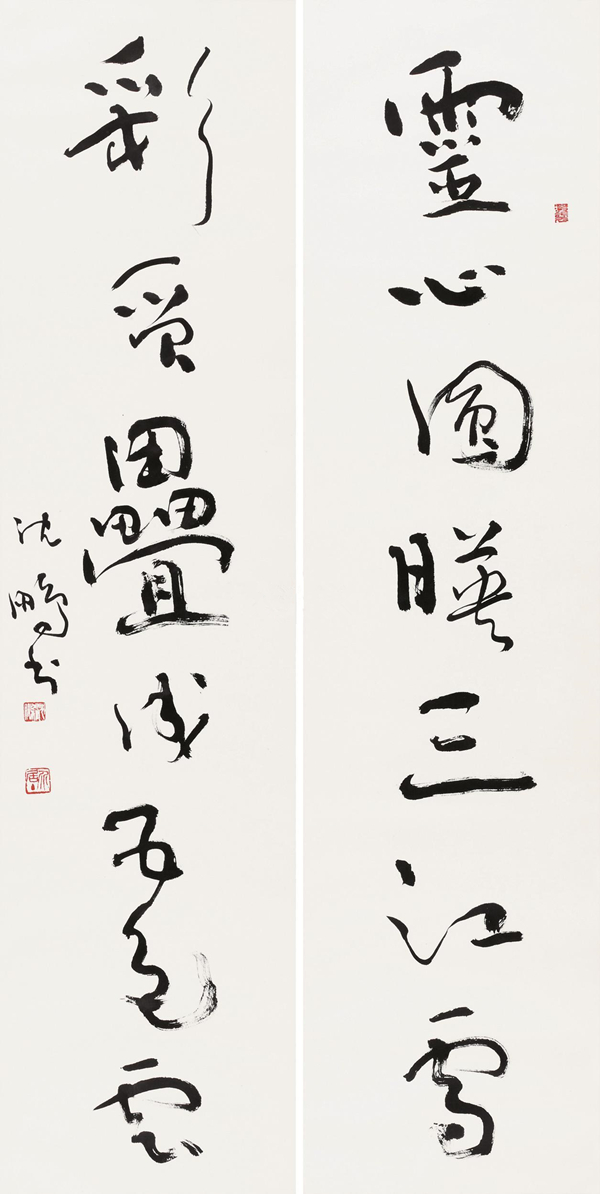 靈心圓暎三江雪
彩質疊成五色雲
沈鵬書